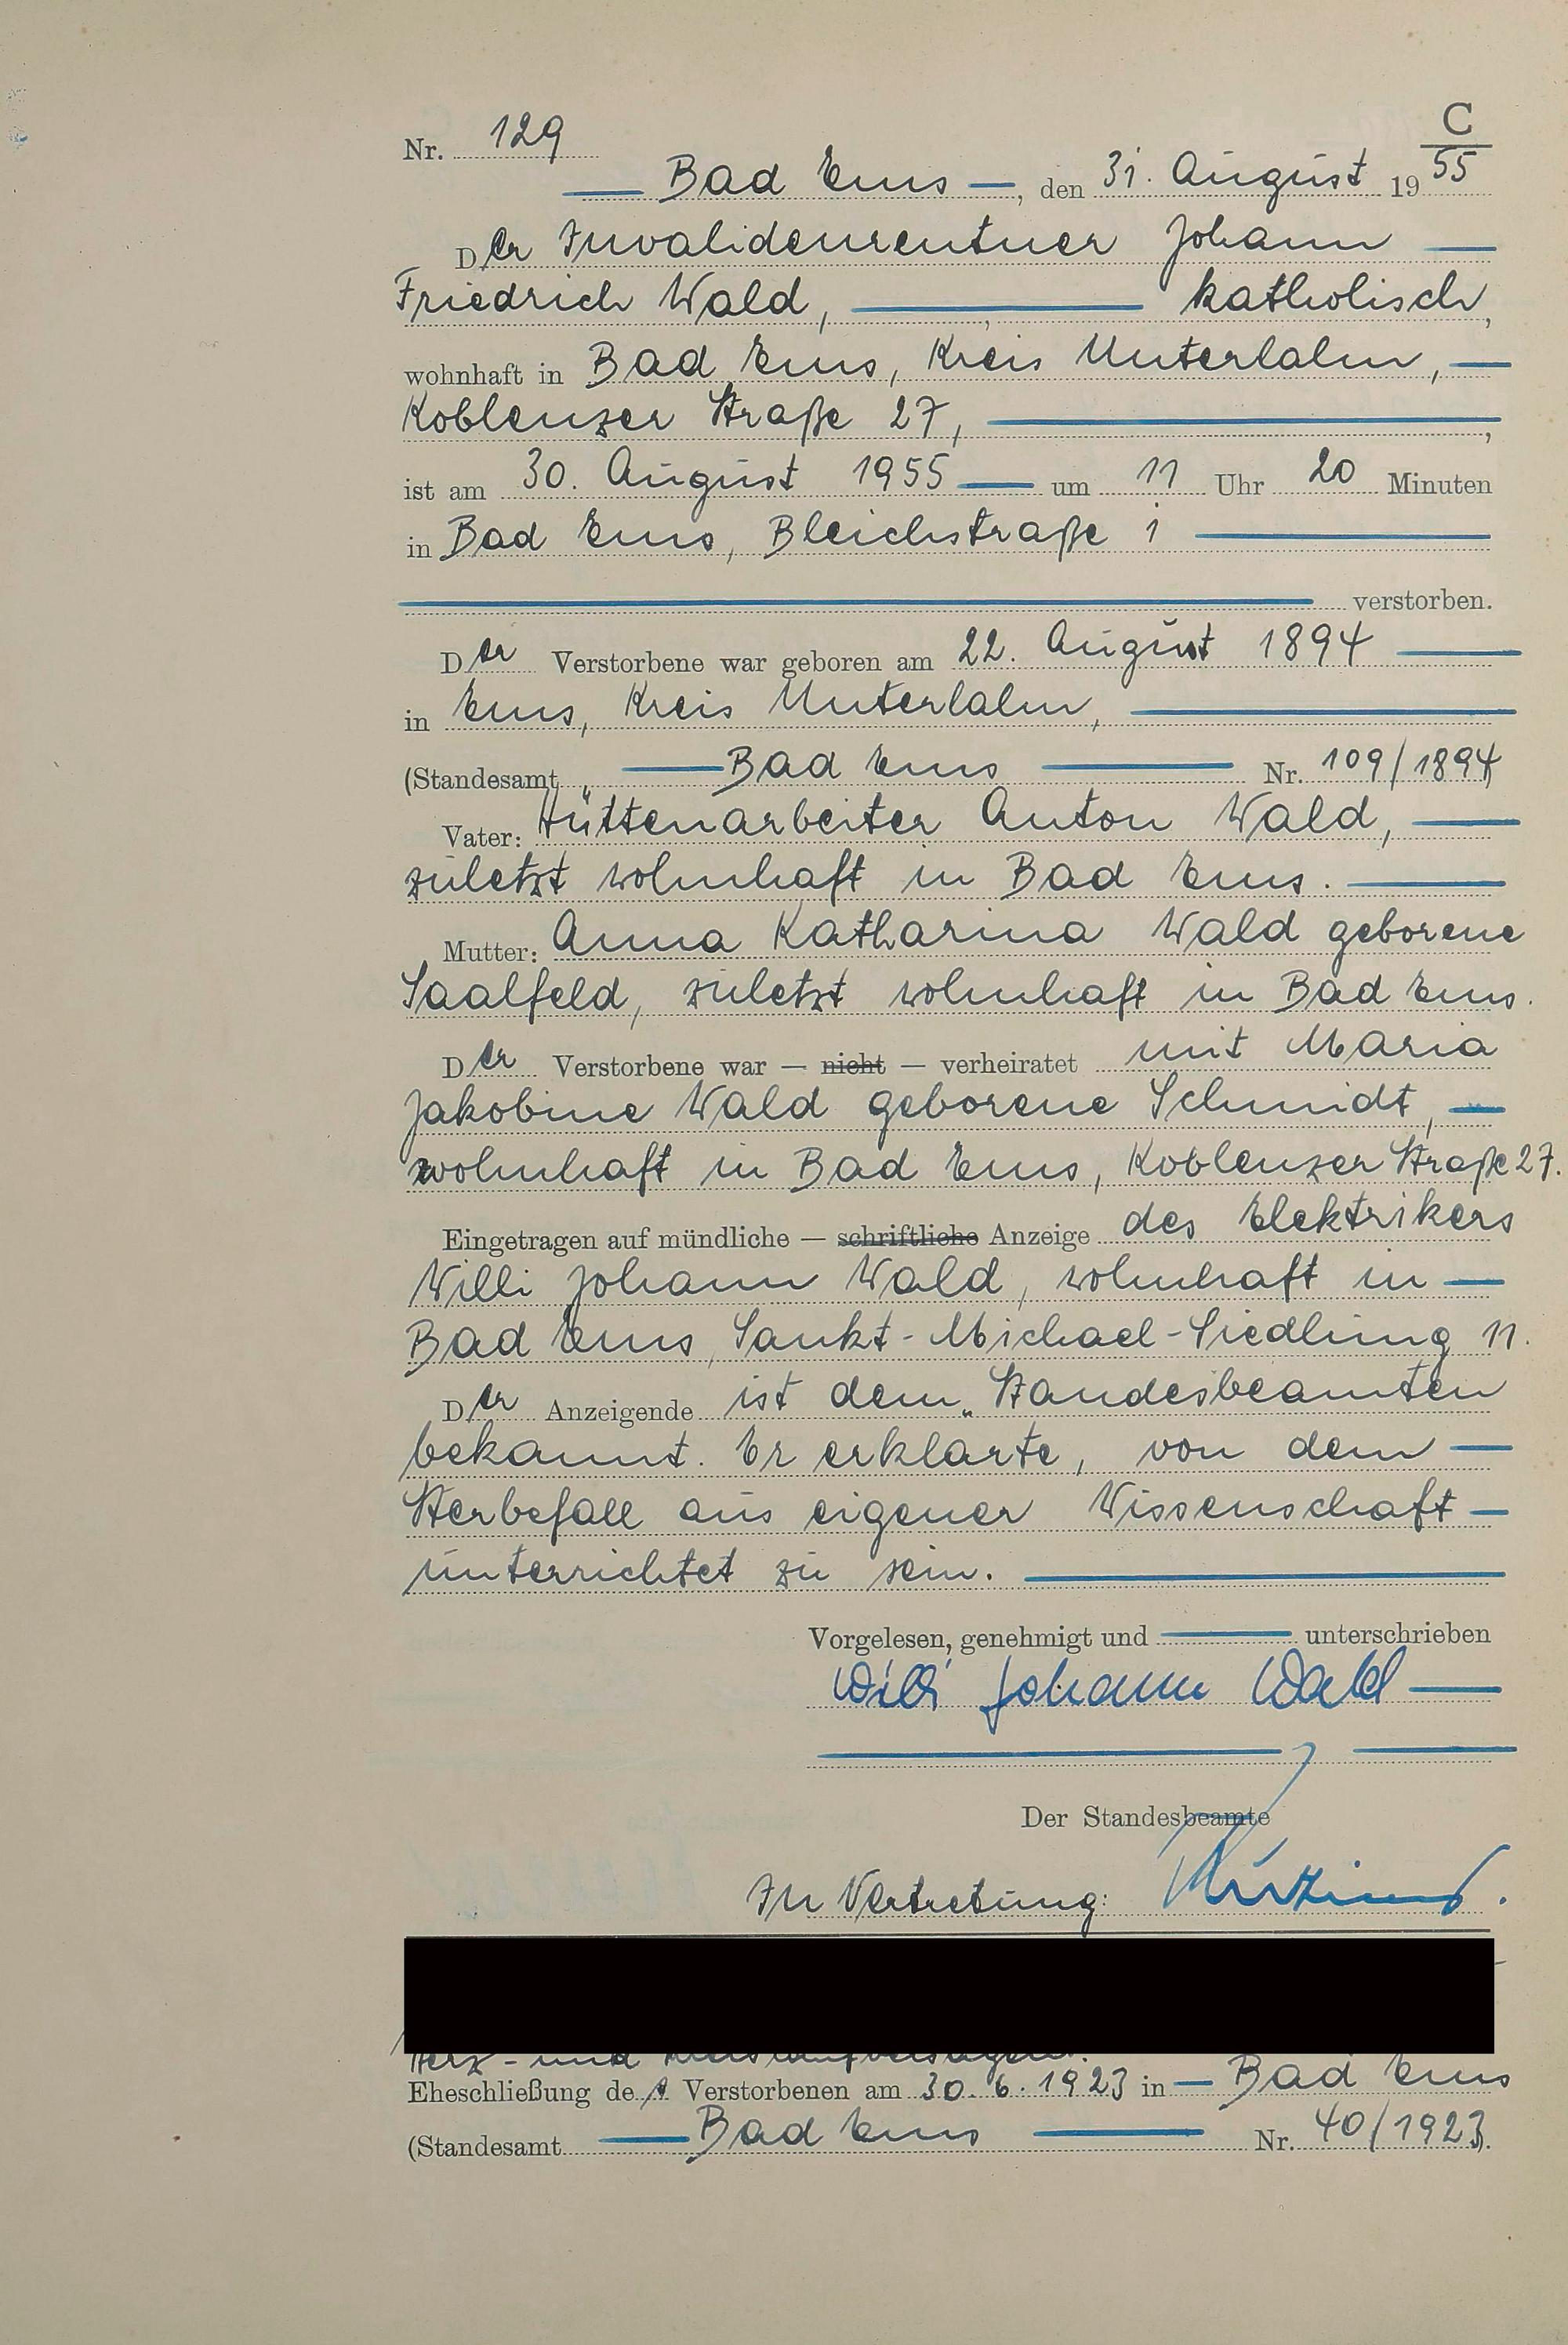 C
Nr. 129
Bad Ems, den 31. August 1955
Der Invalidenrentner Johann
Friedrich Wald, , katholisch,
wohnhaft in Bad Ems, Kreis Unterlahn,
Koblenzer Straße 27, ,
ist am 30. August 1955 um 11 Uhr 20 Minuten
in Bad Ems, Bleichstraße 1
verstorben.
Der Verstorbene war geboren am 22. August 1894
in Ems, Kreis Unterlahn,
(Standesamt Bad Ems Nr. 109/1894)
Vater: Hüttenarbeiter Anton Wald,
zuletzt wohnhaft in Bad Ems.
Mutter: Anna Katharina Wald geborene
Saalfeld, zuletzt wohnhaft in Bad Ems.
Der Verstorbene war — nicht — verheiratet mit Maria
Jakobine Wald geborene Schmidt,
wohnhaft in Bad Ems, Koblenzer Straße 27.
Eingetragen auf mündliche — schriftliche Anzeige des Elektrikers
Willi Johann Wald, wohnhaft in
Bad Ems, Sankt-Michael-Siedlung 11.
Der Anzeigende ist dem Standesbeamten
bekannt. Er erklärte, von dem
Sterbefall aus eigener Wissenschaft
unterrichtet zu sein.
Vorgelesen, genehmigt und unterschrieben
Willi Johann Wald
Der Standesbeamte
In Vertretung:
Herz- und
Eheschließung des Verstorbenen am 30.6.1923 in Bad Ems
(Standesamt Bad Ems Nr. 40/1923).